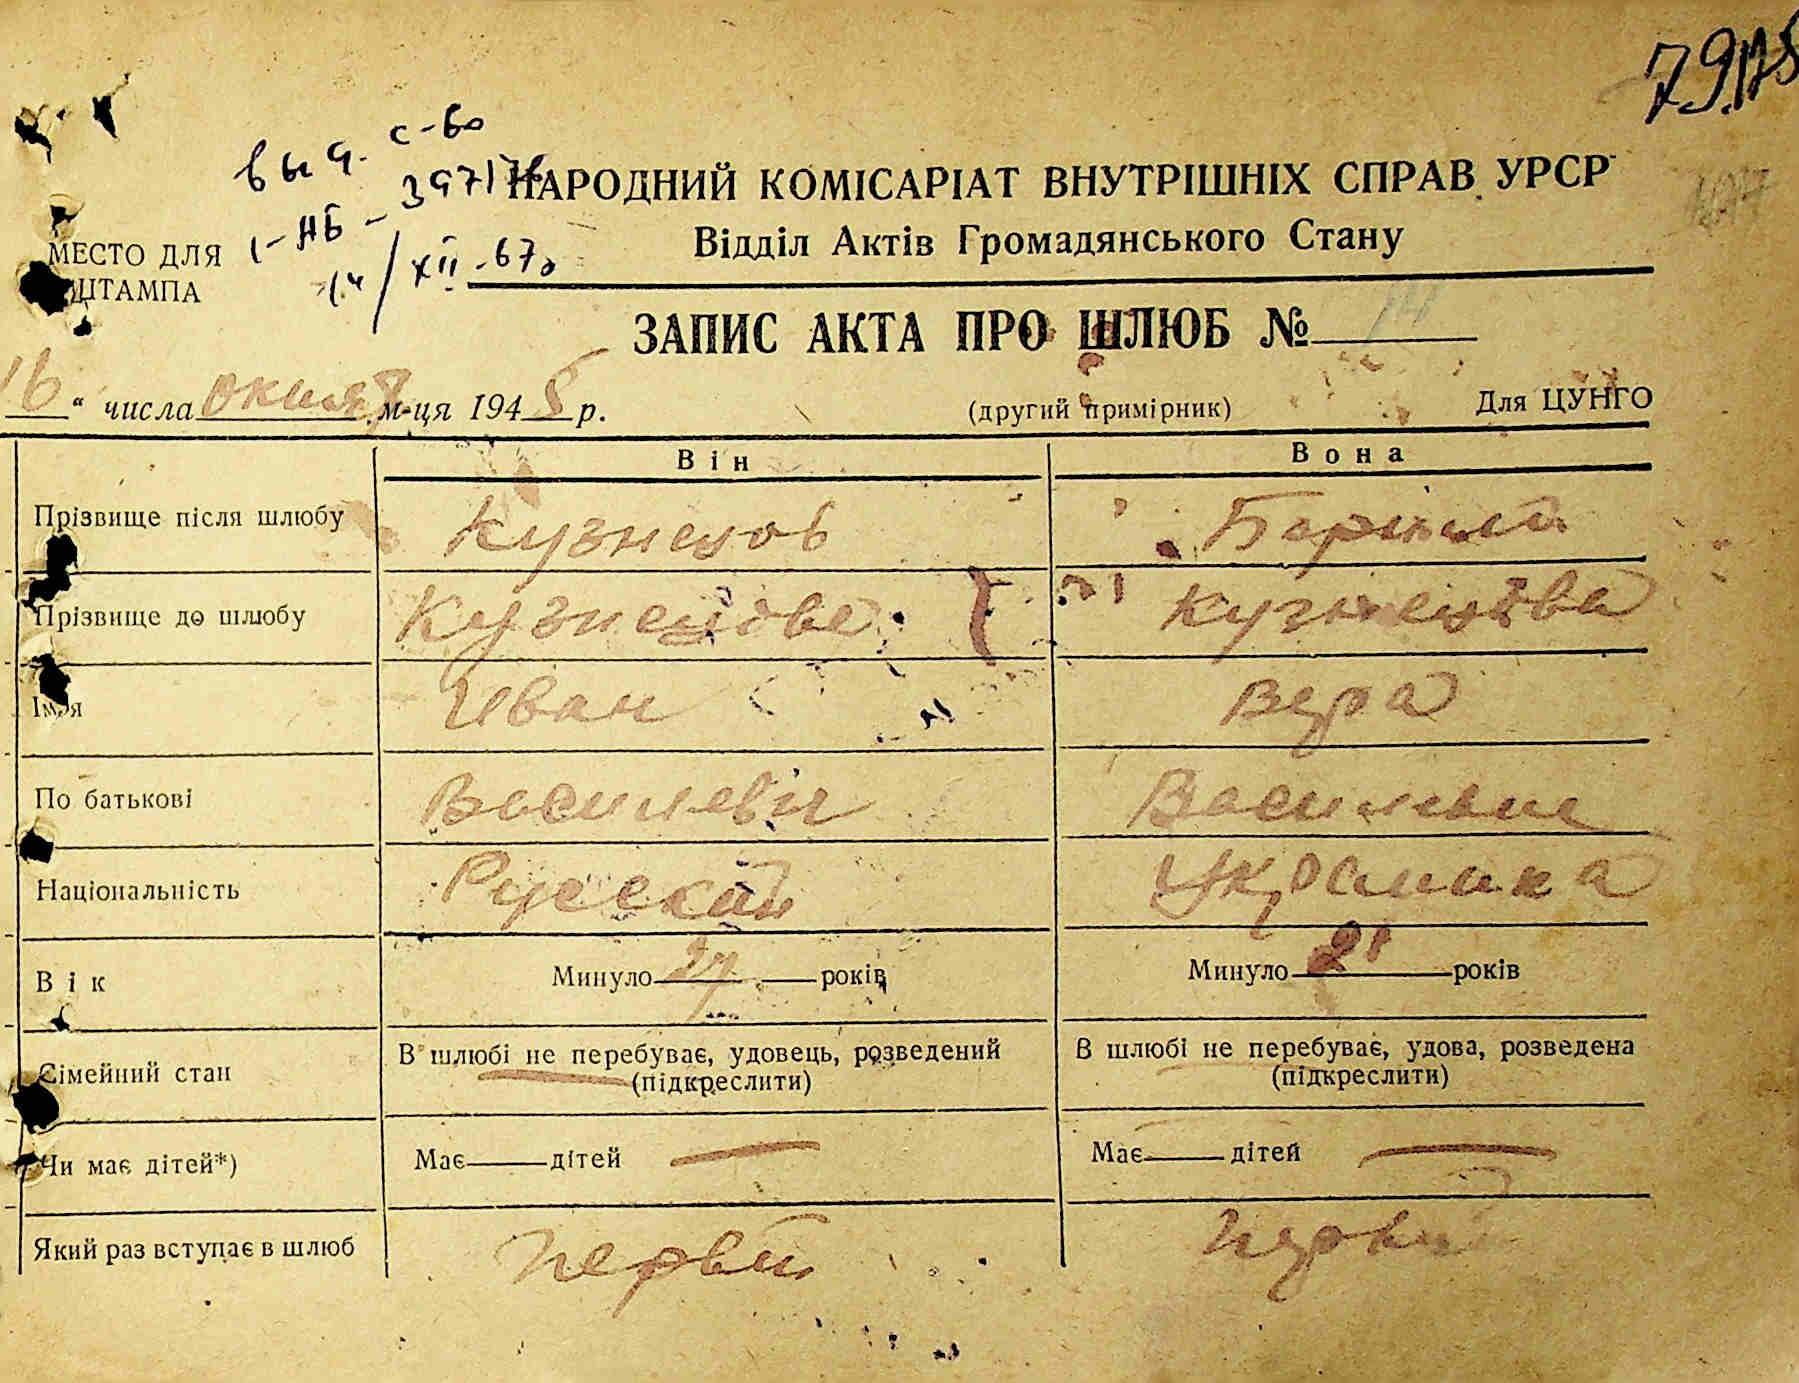 79.
выд. с-во
1-НБ-
14/XII-67г
НАРОДНИЙ КОМІСАРІАТ ВНУТРІШНІХ СПРАВ УРСР
Відділ Актів Громадянського Стану
МЕСТО ДЛЯ
ШТАМПА
ЗАПИС АКТА ПРО ШЛЮБ №
16 " числа м-ця 1945 р.
(другий примірник)
Для ЦУНГО
Він Вона
Прізвище після шлюбу Кузнецов
Прізвище до шлюбу Кузнецова Кузнецова
Ім'я Иван Вера
По батькові Василевич
Національність Русский Украинка
Вік Минуло 27 років Минуло 21 років
Сімейний стан В шлюбі не перебуває, удовець, розведений В шлюбі не перебуває, удова, розведена
(підкреслити) (підкреслити)
Чи має дітей*) Має дітей — Має дітей —
Який раз вступає в шлюб первый первый